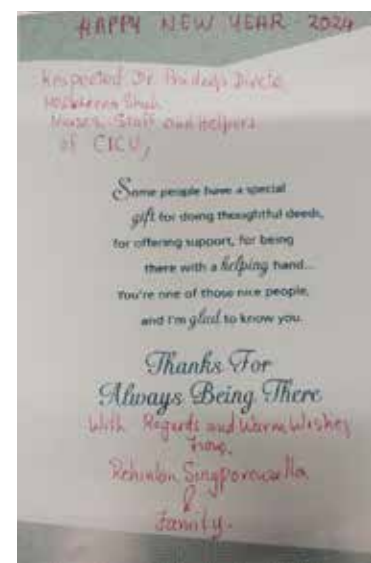 HAPPY NEW YEAR - 2024
Respected Dr.
Nurses, Staff and Helpers
of CICU,
Some people have a special
gift for doing thoughtful deeds,
for offering support, for being
there with a helping hand...
You're one of those nice people,
and I'm glad to know you.
Thanks For
Always Being There
With Regards and Warm Wishes
from,
Singporewalla
&
Family.